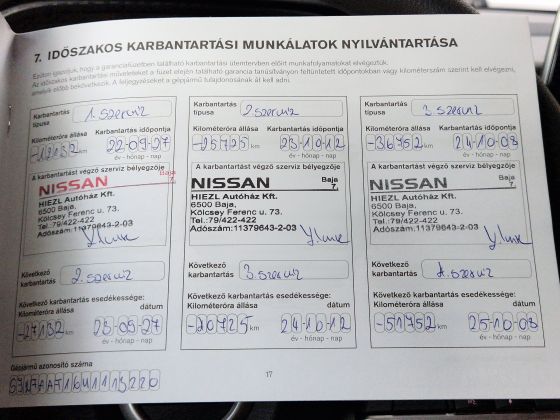 7. IDŐSZAKOS KARBANTARTÁSI MUNKÁLATOK NYILVÁNTARTÁSA
Ezúton igazoljuk, hogy a garanciafüzetben található karbantartási ütemtervben előírt munkafolyamatokat elvégeztük.
Az időszakos karbantartási műveleteket a füzet elején található garancia tanúsítványon feltüntetett időpontokban vagy kilométerszám szerint kell elvégezni,
amelyik előbb bekövetkezik. A feljegyzéseket a gépjármű tulajdonosának át kell adni.
Karbantartás típusa
1. szerviz
Kilométeróra állása
Karbantartás időpontja
-12132 km
22-09-27
év - hónap - nap
A karbantartást végző szerviz bélyegzője
NISSAN
Baja
7.
HIEZL Autóház Kft.
6500 Baja,
Kölcsey Ferenc u. 73.
Tel.:79/422-422
Adószám:11379643-2-03
Következő karbantartás
2. szerviz
Következő karbantartás esedékessége:
Kilométeróra állása
dátum
-27132 km
23-09-27
év - hónap - nap
Karbantartás típusa
2. szerviz
Kilométeróra állása
Karbantartás időpontja
-25725 km
231012
év - hónap - nap
A karbantartást végző szerviz bélyegzője
NISSAN
Baja
7.
HIEZL Autóház Kft.
6500 Baja,
Kölcsey Ferenc u. 73.
Tel.:79/422-422
Adószám:11379643-2-03
Következő karbantartás
3. szerviz
Következő karbantartás esedékessége:
Kilométeróra állása
dátum
-20725 km
241012
év - hónap - nap
Karbantartás típusa
3. szerviz
Kilométeróra állása
Karbantartás időpontja
-36752 km
241008
év - hónap - nap
A karbantartást végző szerviz bélyegzője
NISSAN
Baja
7.
HIEZL Autóház Kft.
6500 Baja,
Kölcsey Ferenc u. 73.
Tel.:79/422-422
Adószám:11379643-2-03
Következő karbantartás
4. szerviz
Következő karbantartás esedékessége:
Kilométeróra állása
dátum
-51752 km
251008
év - hónap - nap
Gépjármű azonosító száma
17